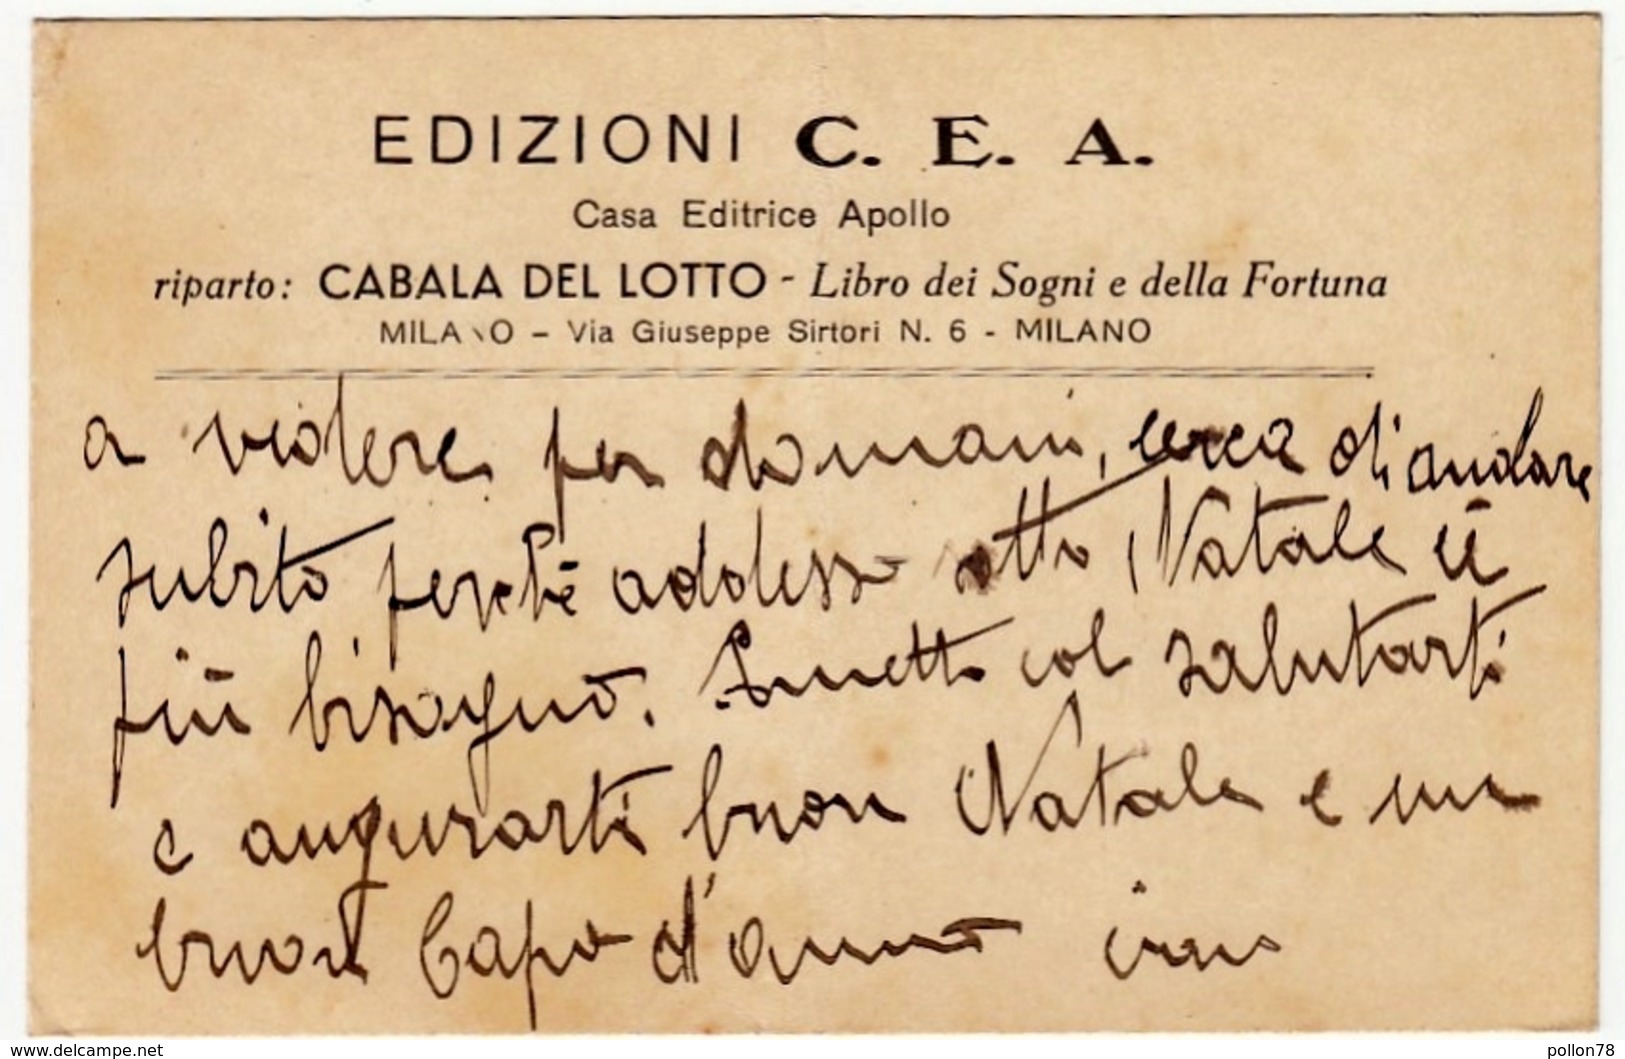 EDIZIONI C. E. A.
Casa Editrice Apollo
riparto: CABALA DEL LOTTO - Libro dei Sogni e della Fortuna
MILANO – Via Giuseppe Sirtori N. 6 - MILANO
a vedere per domani, cerca di andare
subito perchè addesso sotto Natale è
più bisogno. Smetto col salutarti
e augurarti buon Natale e un
buon Capo d'anno
www.delcampe.net
pollon78